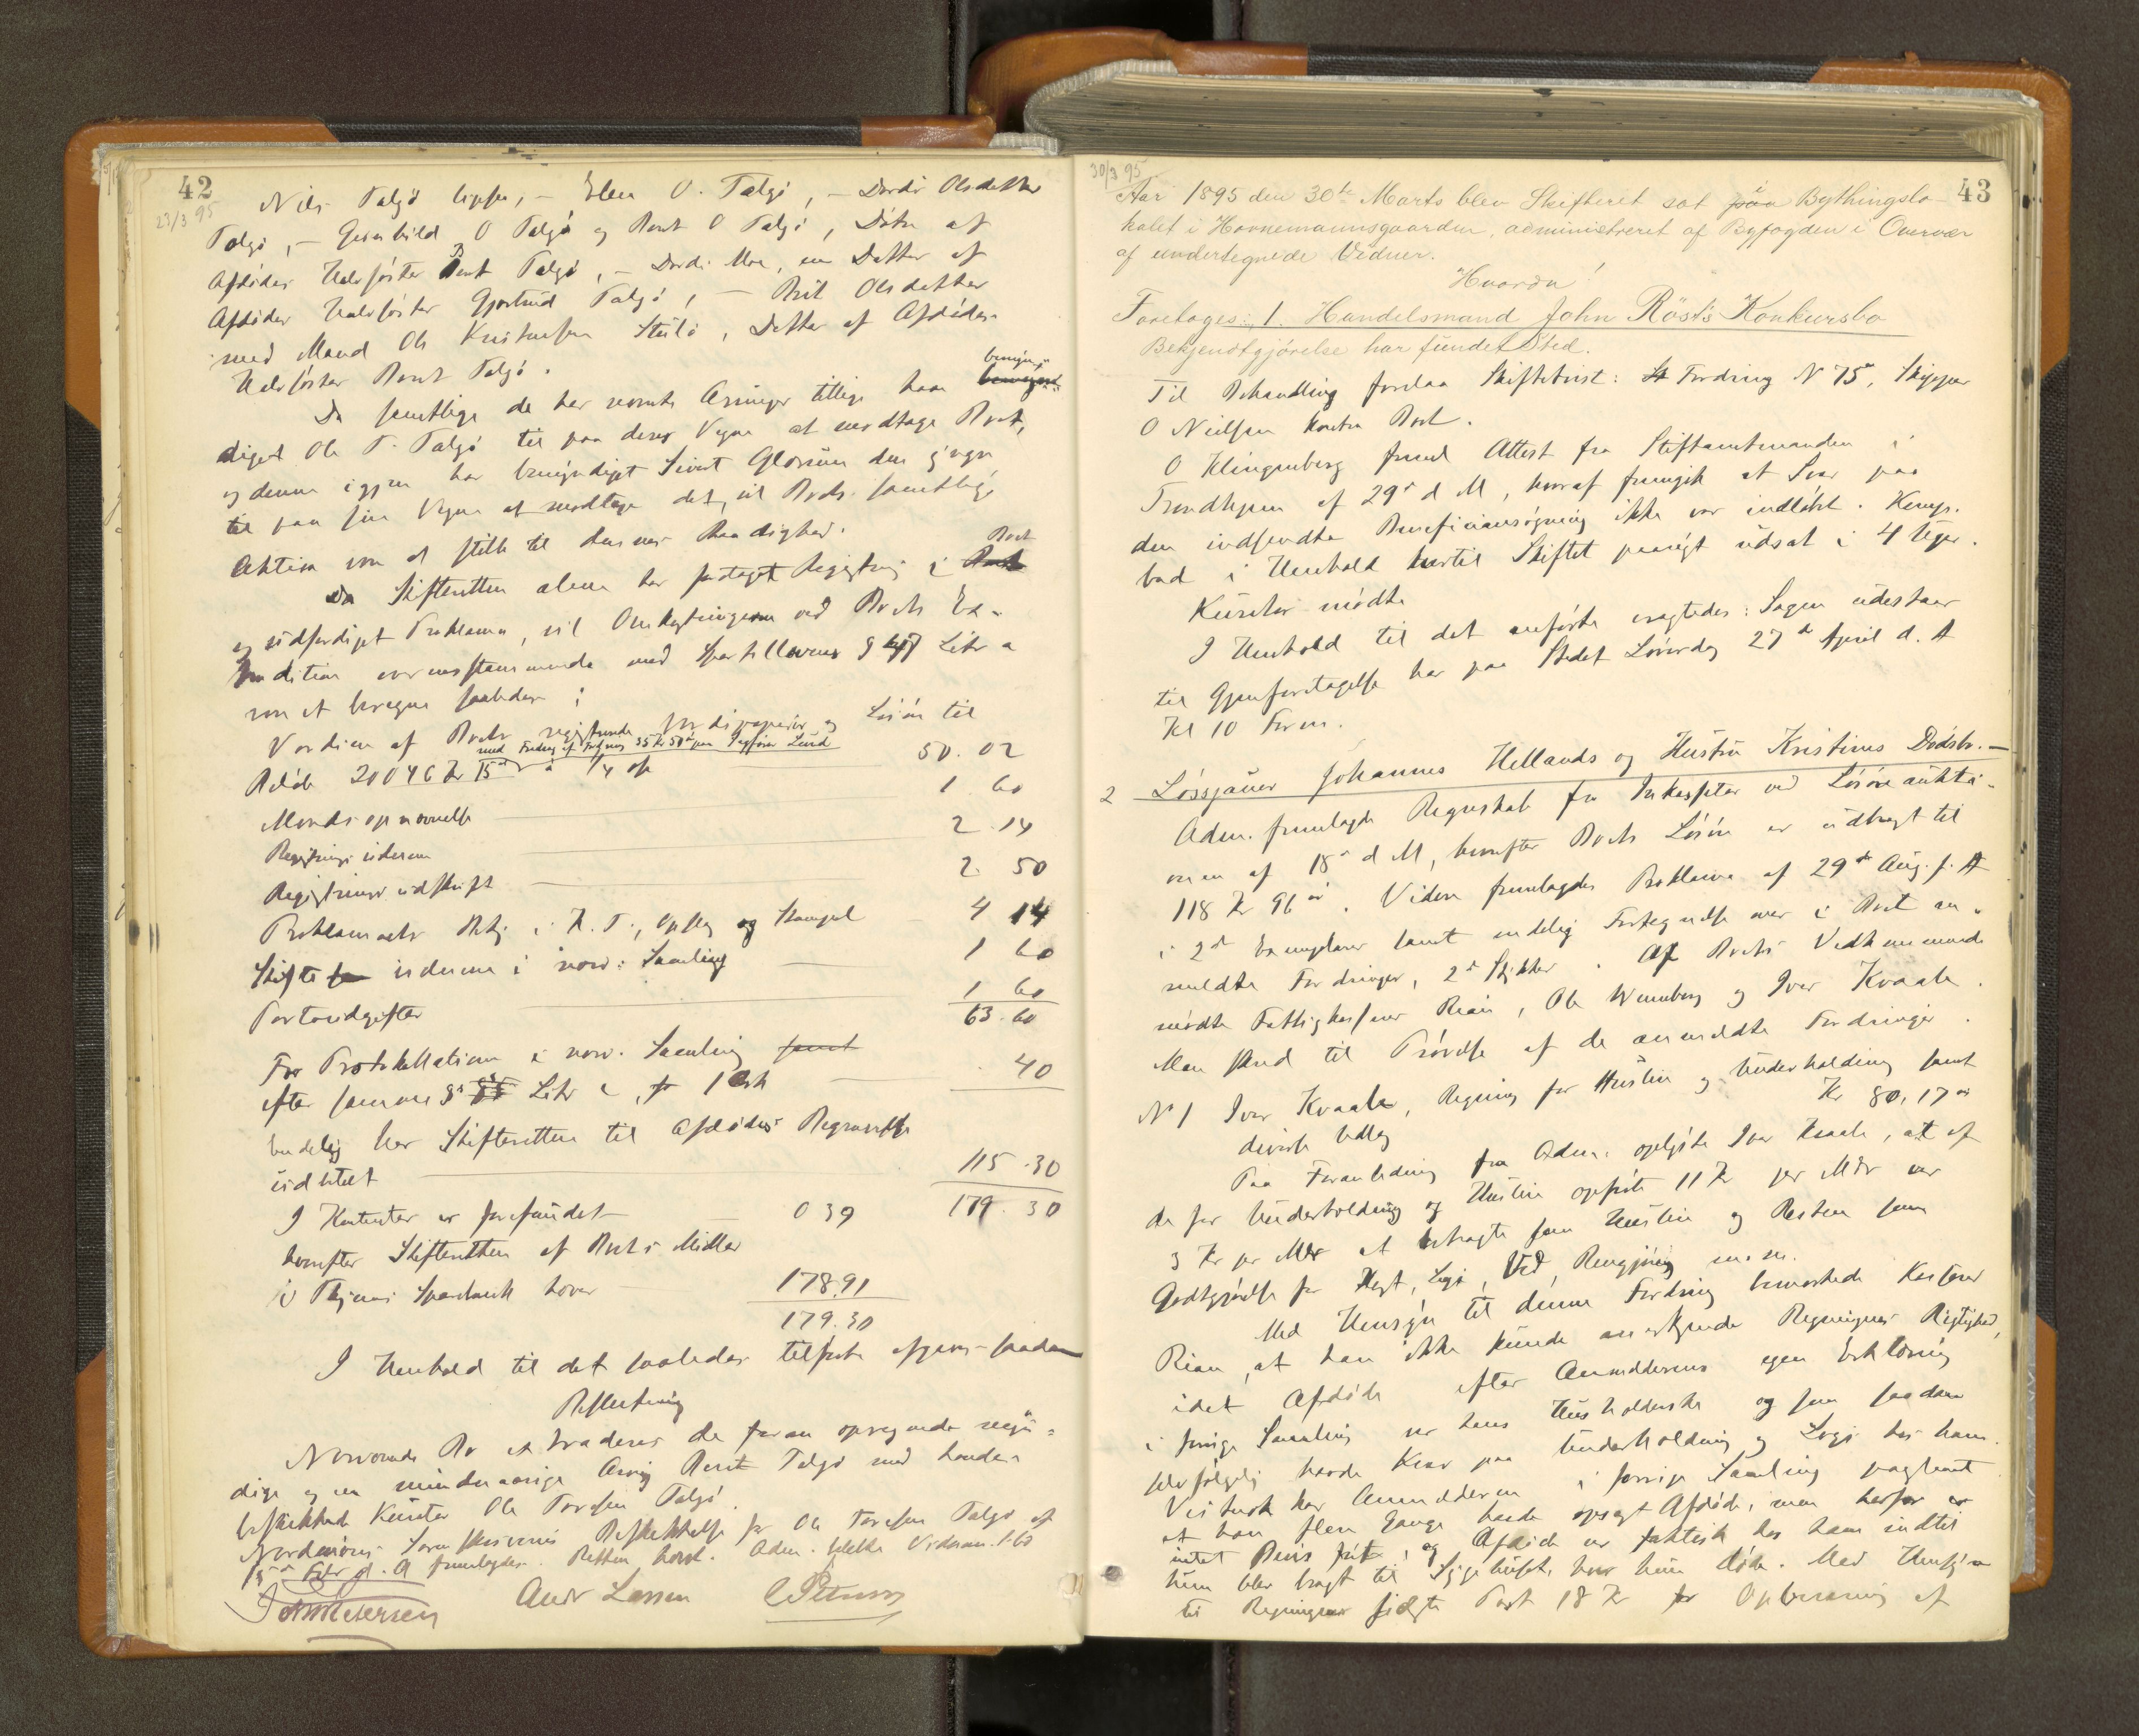 42
23/3 95
Nils Talgö ligesaa, - Elen O. Talgö, - Dordi Olsdatter
Talgö, - Gunhild O Talgö og Beret O Talgö, Døtre af
Afdødes Halvsöster Berit Talgö, - Dordi Moe, en Datter af
Afdödes Halvsöster Gjertrud Talgö, - Brit Olsdatter
med Mand Ole Kristensen Stulö, Datter af Afdödes
Halvsöster Beret Talgö.
Da samtlige de her nævnte Arvinger tillige have bemyn-
diget Ole T. Talgö til paa deres Vegne at modtage Boet,
og denne igjen har bemyndiget Sivert Glærum den yngre
til paa sine Vegne at modtage det, vil Boets samtlige
Aktiva være at stille til dennes Raadighed.
Da Skifteretten alene har foretaget Registrering i Boet
og udfærdiget Proklama, vil Omkostningerne ved Boets Ex-
tradition overensstemmende med Sportellovens § 47 Litr a
være at beregne saaledes:
Værdien af Boets registrerede Værdipapirer og Lösöre til
med Fradrag af 35 Kr 50 Lund
Beløb 20046 Kr 15 ör à 1/4 % 50.02
Mændsopnævnelse 1 60
Registrings videres 2.14
Registrerings udskrift 2. 50
Proklamaets Bekj. i K. T., Opslag og Stempel 4 14
Skifte videres i nærv: Samling 1 60
Portoudgifter 1 60
63.60
For Protokollation i nærv. Samling samt
efter samme § Litr c, for 1 Ark 40
Endelig har Skifteretten til Afdødes Begravelse
udbetalt 115.30
I Kontanter er forefundet 0 39 179.30
hvorefter Skifteretten af Boets Midler
i Byens Sparebank hæver 178.91
179.30
I Henhold til det saaledes tilførte afgaves saadan
Beslutning
Nærværende Bo extraderes de foran opregnede myn-
dige og en mindreaarige Arving Beret Talgö med hendes
beskikkede Kurator Ole Toresen Talgö.
Nordmörs Sorenskriveris Beskikkelse for Ole Toresen Talgö af
15de Febr d. A fremlagdes. Retten hævet. Adm. betalte Vidnerne 1.60
Andr Larsen C Petersen
30/3 95
43
Aar 1895 den 30te Marts blev Skifteret sat paa i Bythingslo-
kalet i Hornemannsgaarden, administreret af Byfogden i Overvær
af undertegnede Vidner.
Hvorda!
Foretoges: 1. Handelsmand John Rösts Konkursbo
Bekjendtgjörelse har fundet Sted.
Til Behandling forelaa Skiftetvist: Fordring N 75, Skipper
O Nielsen kontra Boet.
O Klingenberg freml Attest fra Stiftamtmanden i
Trondhjem af 29de d M, hvoraf fremgik at Svar paa
den indsendte Beneficieansögning ikke var indløbet. Komp.
bad i Henhold hertil Skiftet paanyt udsat i 4 Uger.
Kurator mödte
I Henhold til det anførte eragtedes: Sagen udestaar
til Gjenforetagelse her paa Stedet Löverdag 27de April d. A
Kl 10 Form.
2 Lössjauer Johannes Hellands og Hustru Kristines Dödsbo. -
Adm. fremlagde Regnskab fra Inkassator ved Lösöreaukti-
onen af 18de d M, hvorefter Boets Lösöre er udbragt til
118 Kr 96 ör. Videre fremlagdes Proklama af 29de Aug. f. A
i 2de Exemplarer samt endelig Fortegnelse over i Boet an-
meldte Fordringer, 2de Stykker. Af Boets Vedkommende
mödte Fattigkasserer Rian, Ole Wennberg og Iver Kvaale.
Man skred til Prövelse af de anmeldte Fordringer.
N 1 Iver Kvaale, Regning for Husleie og Underholdning samt
diverse Udlæg Kr 80,17 ör
Paa Foranledning fra Adm. oplyste Iver Kvaale, at af
de for Underholdning og Husleie opførte 11 Kr per Md var
3 Kr per Md at betragte som Husleie og Resten som
Godtgjørelse for Kost, Logi, Ved, Rengjöring m.m.
Med Hensyn til denne Fordring bemærkede Kasserer
Rian, at han ikke kunde anerkjende Regningens Rigtighed,
idet Afdöde efter Anmelderens egen Erklæring
i forrige Samling var hans Husholderske og som saadan
selvfølgelig havde Krav paa Underholdning og Logi hos ham.
Vistnok har Anmelderen i forrige Samling paastaaet
at han flere Gange havde opsagt Afdöde, men herfor er
intet Bevis ført, og Afdöde var faktisk hos ham indtil
hun blev bragt til Sygehuset, hvor hun döde. Med Hensyn
til Regningens sidste Post 18 Kr for Opbevaring af